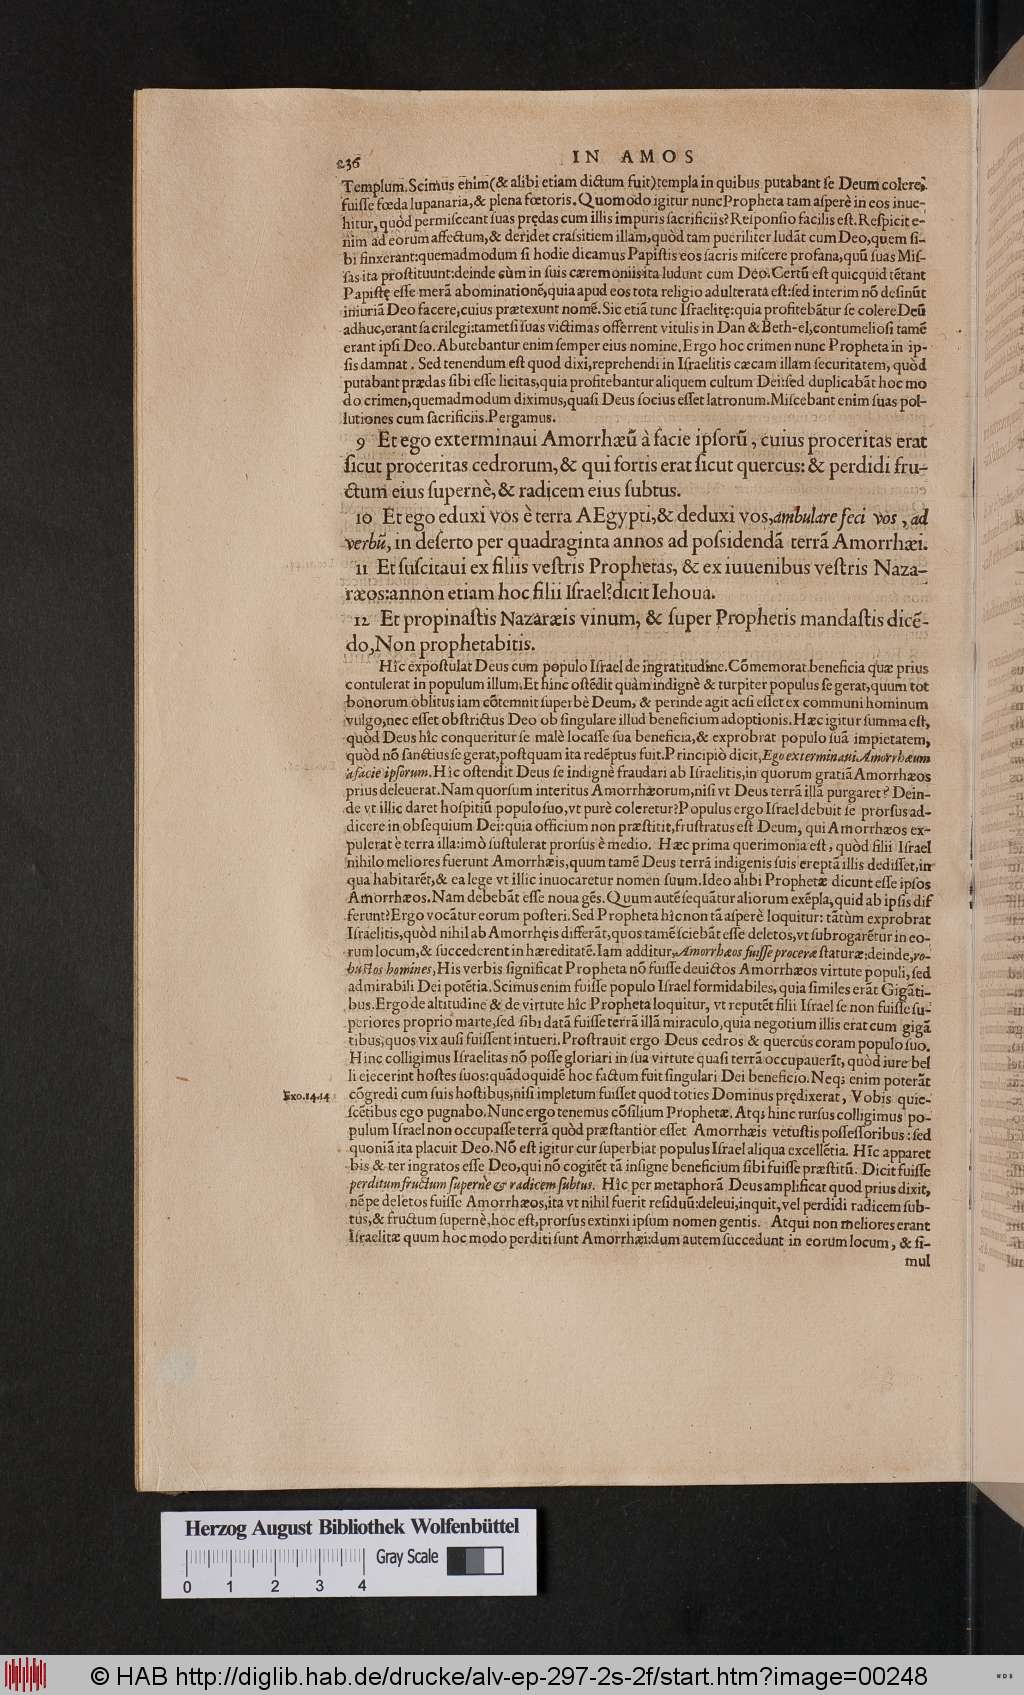 236
IN AMOS
Templum. Scimus enim (& alibi etiam dictum fuit) templa in quibus putabant ſe Deum colere,
fuiſſe fœda lupanaria, & plena fœtoris. Quomodo igitur nunc Propheta tam aſperè in eos inue-
hitur, quòd permiſceant ſuas prędas cum illis impuris ſacrificiis? Reſponſio facilis eſt. Reſpicit e-
nim ad eorum affectum, & deridet craſsitiem illam, quòd tam pueriliter ludāt cum Deo, quem ſi-
bi finxerant: quemadmodum ſi hodie dicamus Papiſtis eos ſacris miſcere profana, quū ſuas Miſ-
ſas ita proſtituunt: deinde cùm in ſuis cæremoniis ita ludunt cum Deo. Certū eſt quicquid tētant
Papiſtę eſſe merā abominationē, quia apud eos tota religio adulterata eſt: ſed interim nō deſinūt
iniuriā Deo facere, cuius prætexunt nomē. Sic etiā tunc Iſraelitę: quia profitebātur ſe colere Deū
adhuc, erant ſacrilegi: tametſi ſuas victimas offerrent vitulis in Dan & Beth-el, contumelioſi tamē
erant ipſi Deo. Abutebantur enim ſemper eius nomine. Ergo hoc crimen nunc Propheta in ip-
ſis damnat. Sed tenendum eſt quod dixi, reprehendi in Iſraelitis cæcam illam ſecuritatem, quòd
putabant prædas ſibi eſſe licitas, quia profitebantur aliquem cultum Dei: ſed duplicabāt hoc mo
do crimen, quemadmodum diximus, quaſi Deus ſocius eſſet latronum. Miſcebant enim ſuas pol-
lutiones cum ſacrificiis. Pergamus.
9 Et ego exterminaui Amorrhæū à facie ipſorū, cuius proceritas erat
ſicut proceritas cedrorum, & qui fortis erat ſicut quercus: & perdidi fru-
ctum eius ſupernè, & radicem eius ſubtus.
10 Et ego eduxi vos è terra AEgypti, & deduxi vos, ambulare feci vos, ad
verbū, in deſerto per quadraginta annos ad poſsidendā terrā Amorrhæi.
11 Et ſuſcitaui ex filiis veſtris Prophetas, & ex iuuenibus veſtris Naza-
ræos: annon etiam hoc filii Iſrael? dicit Iehoua.
12 Et propinaſtis Nazaræis vinum, & ſuper Prophetis mandaſtis dicē-
do, Non prophetabitis.
Hîc expoſtulat Deus cum populo Iſrael de ingratitudine. Cōmemorat beneficia quæ prius
contulerat in populum illum. Et hinc oſtēdit quàm indignè & turpiter populus ſe gerat, quum tot
bonorum oblitus iam cōtemnit ſuperbè Deum, & perinde agit acſi eſſet ex communi hominum
vulgo, nec eſſet obſtrictus Deo ob ſingulare illud beneficium adoptionis. Hæc igitur ſumma eſt,
quòd Deus hîc conqueritur ſe malè locaſſe ſua beneficia, & exprobrat populo ſuā impietatem,
quòd nō ſanctius ſe gerat, poſtquam ita redēptus fuit. Principiò dicit, Ego exterminaui Amorrhæum
à facie ipſorum. Hîc oſtendit Deus ſe indignè fraudari ab Iſraelitis, in quorum gratiā Amorrhæos
prius deleuerat. Nam quorſum interitus Amorrhæorum, niſi vt Deus terrā illā purgaret? Dein-
de vt illic daret hoſpitiū populo ſuo, vt purè coleretur? Populus ergo Iſrael debuit ſe prorſus ad-
dicere in obſequium Dei: quia officium non præſtitit, fruſtratus eſt Deum, qui Amorrhæos ex-
pulerat è terra illa: imò ſuſtulerat prorſus è medio. Hæc prima querimonia eſt, quòd filii Iſrael
nihilo meliores fuerunt Amorrhæis, quum tamē Deus terrā indigenis ſuis ereptā illis dediſſet, in
qua habitarēt, & ea lege vt illic inuocaretur nomen ſuum. Ideo alibi Prophetæ dicunt eſſe ipſos
Amorrhæos. Nam debebāt eſſe noua gēs. Quum autē ſequātur aliorum exēpla, quid ab ipſis dif
ferunt? Ergo vocātur eorum poſteri. Sed Propheta hîc non tā aſperè loquitur: tātùm exprobrat
Iſraelitis, quòd nihil ab Amorrhęis differāt, quos tamē ſciebāt eſſe deletos, vt ſubrogarētur in eo-
rum locum, & ſuccederent in hæreditatē. Iam additur, Amorrhæos fuiſſe proceræ ſtaturæ: deinde, ro-
buſtos homines, His verbis ſignificat Propheta nō fuiſſe deuictos Amorrhæos virtute populi, ſed
admirabili Dei potētia. Scimus enim fuiſſe populo Iſrael formidabiles, quia ſimiles erāt Gigāti-
bus. Ergo de altitudine & de virtute hîc Propheta loquitur, vt reputēt filii Iſrael ſe non fuiſſe ſu-
periores proprio marte, ſed ſibi datā fuiſſe terrā illā miraculo, quia negotium illis erat cum gigā
tibus, quos vix auſi fuiſſent intueri. Proſtrauit ergo Deus cedros & quercus coram populo ſuo.
Hinc colligimus Iſraelitas nō poſſe gloriari in ſua virtute quaſi terrā occupauerīt, quòd iure bel
li eiecerint hoſtes ſuos: quādoquidē hoc factum fuit ſingulari Dei beneficio. Neq; enim poterāt
Exo. 14.14
cōgredi cum ſuis hoſtibus, niſi impletum fuiſſet quod toties Dominus prędixerat, Vobis quie-
ſcētibus ego pugnabo. Nunc ergo tenemus cōſilium Prophetæ. Atq; hinc rurſus colligimus po-
pulum Iſrael non occupaſſe terrā quòd præſtantior eſſet Amorrhæis vetuſtis poſſeſſoribus: ſed
quoniā ita placuit Deo. Nō eſt igitur cur ſuperbiat populus Iſrael aliqua excellētia. Hîc apparet
bis & ter ingratos eſſe Deo, qui nō cogitēt tā inſigne beneficium ſibi fuiſſe præſtitū. Dicit fuiſſe
perditum fructum ſupernè & radicem ſubtus. Hîc per metaphorā Deus amplificat quod prius dixit,
nēpe deletos fuiſſe Amorrhæos, ita vt nihil fuerit reſiduū: deleui, inquit, vel perdidi radicem ſub-
tus, & fructum ſupernè, hoc eſt, prorſus extinxi ipſum nomen gentis. Atqui non meliores erant
Iſraelitæ quum hoc modo perditi ſunt Amorrhæi: dum autem ſuccedunt in eorum locum, & ſi-
mul
Herzog August Bibliothek Wolfenbüttel
Gray Scale
0 1 2 3 4
© HAB http://diglib.hab.de/drucke/alv-ep-297-2s-2f/start.htm?image=00248